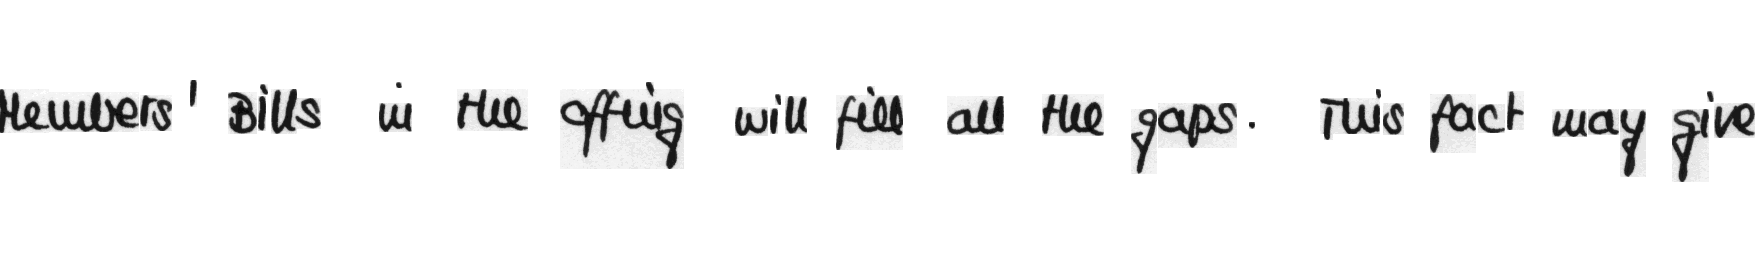 Members' Bills in the offing will fill all the gaps. This fact may give